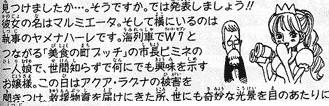 見つけましたか…。そうですか。では発表しましょう!!
彼女の名はマルミエータ。そして横にいるのは
執事のヤメナハーレです。海列車でW7と
つながる「美食の町プッチ」の市長ビミネの
一人娘で、世間知らずで何にでも興味を示す
お嬢様。この日はアクア・ラグナの被害を
聞きつけ、救援物資を届けにきた所、世にも奇妙な光景を目のあたりに